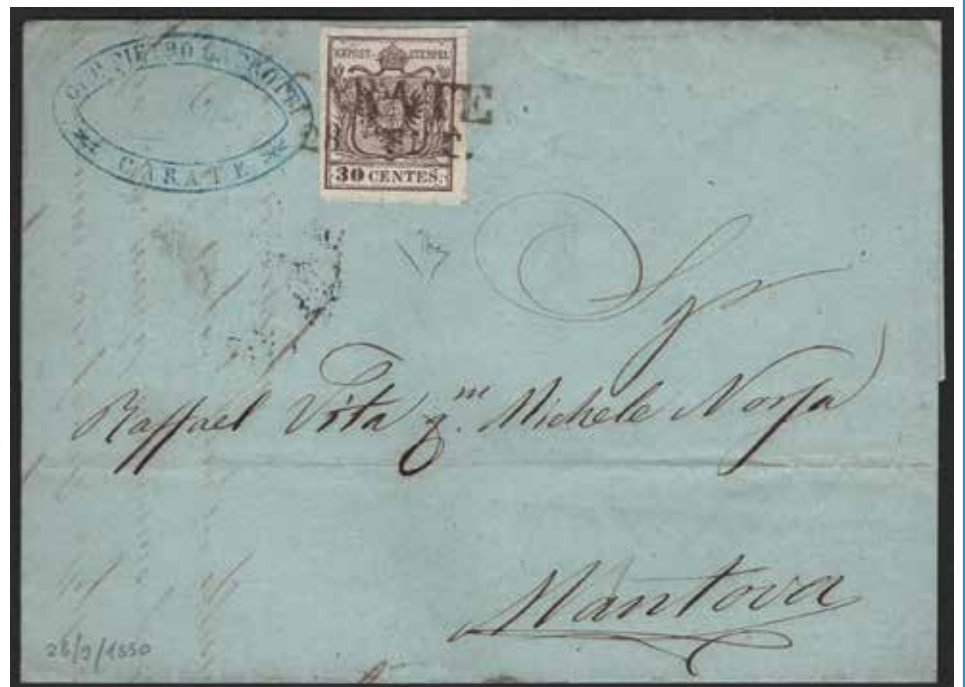 PIETRO
CARATE
KKPOST-STEMPEL
30 CENTES.
RATE
Sigr
Raffael Vita qm. Michele Norsa
Mantova
28/9/1850